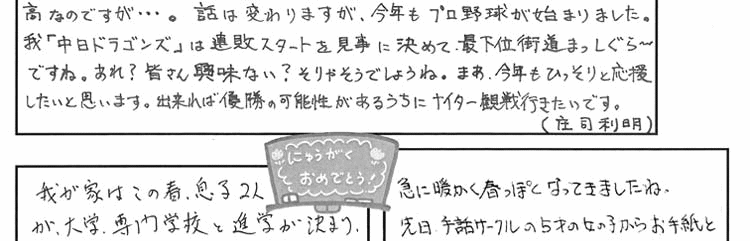 高なのですが…。話は変わりますが、今年もプロ野球が始まりました。
我「中日ドラゴンズ」は連敗スタートを見事に決めて、最下位街道まっしぐら〜
ですね。あれ？皆さん興味ない？そりゃそうでしょうね。まあ、今年もひっそりと応援
したいと思います。出来れば優勝の可能性があるうちにナイター観戦行きたいです。
(庄司利明)
にゅうがく
おめでとう！
我が家はこの春、息子2人
が、大学、専門学校と進学が決まり、
急に暖かく春っぽくなってきましたね。
先日、手話サークルの5才の女の子からお手紙と